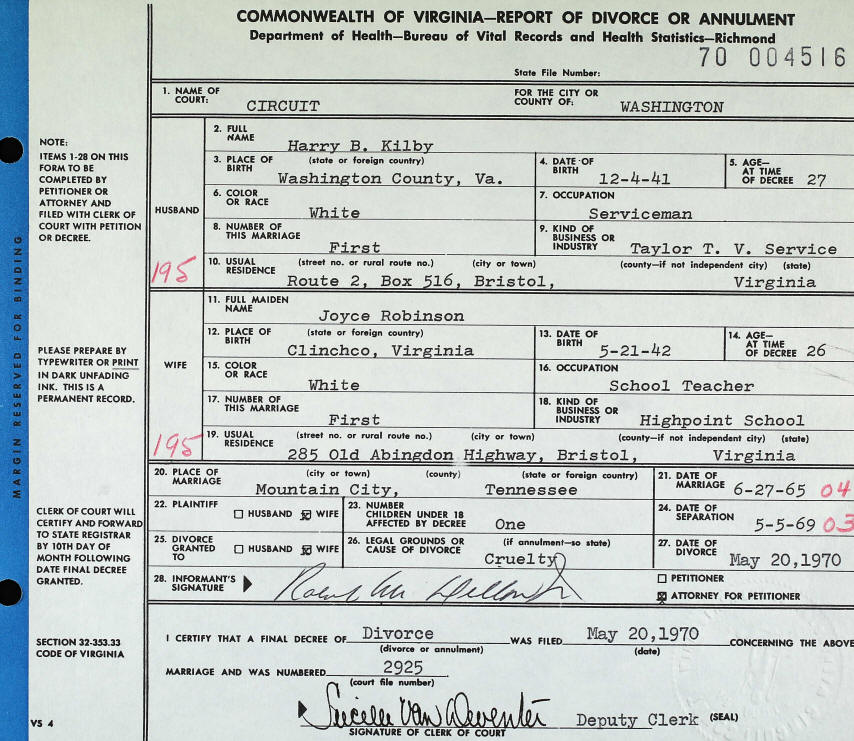 COMMONWEALTH OF VIRGINIA—REPORT OF DIVORCE OR ANNULMENT
Department of Health—Bureau of Vital Records and Health Statistics—Richmond
70 004516
State File Number:
1. NAME OF COURT: CIRCUIT FOR THE CITY OR COUNTY OF: WASHINGTON
NOTE:
ITEMS 1-28 ON THIS
FORM TO BE
COMPLETED BY
PETITIONER OR
ATTORNEY AND
FILED WITH CLERK OF
COURT WITH PETITION
OR DECREE.
HUSBAND
195
2. FULL NAME Harry B. Kilby
3. PLACE OF BIRTH (state or foreign country) Washington County, Va. 4. DATE OF BIRTH 12-4-41 5. AGE— AT TIME OF DECREE 27
6. COLOR OR RACE White 7. OCCUPATION Serviceman
8. NUMBER OF THIS MARRIAGE First 9. KIND OF BUSINESS OR INDUSTRY Taylor T. V. Service
10. USUAL RESIDENCE (street no. or rural route no.) (city or town) (county—if not independent city) (state)
Route 2, Box 516, Bristol, Virginia
MARGIN RESERVED FOR BINDING
PLEASE PREPARE BY
TYPEWRITER OR PRINT
IN DARK UNFADING
INK. THIS IS A
PERMANENT RECORD.
WIFE
195
11. FULL MAIDEN NAME Joyce Robinson
12. PLACE OF BIRTH (state or foreign country) Clinchco, Virginia 13. DATE OF BIRTH 5-21-42 14. AGE— AT TIME OF DECREE 26
15. COLOR OR RACE White 16. OCCUPATION School Teacher
17. NUMBER OF THIS MARRIAGE First 18. KIND OF BUSINESS OR INDUSTRY Highpoint School
19. USUAL RESIDENCE (street no. or rural route no.) (city or town) (county—if not independent city) (state)
285 Old Abingdon Highway, Bristol, Virginia
20. PLACE OF MARRIAGE (city or town) (county) (state or foreign country) Mountain City, Tennessee 21. DATE OF MARRIAGE 6-27-65 04
CLERK OF COURT WILL
CERTIFY AND FORWARD
TO STATE REGISTRAR
BY 10TH DAY OF
MONTH FOLLOWING
DATE FINAL DECREE
GRANTED.
22. PLAINTIFF HUSBAND WIFE 23. NUMBER CHILDREN UNDER 18 AFFECTED BY DECREE One 24. DATE OF SEPARATION 5-5-69 03
25. DIVORCE GRANTED TO HUSBAND WIFE 26. LEGAL GROUNDS OR CAUSE OF DIVORCE (if annulment—so state) Cruelty 27. DATE OF DIVORCE May 20,1970
28. INFORMANT'S SIGNATURE PETITIONER
ATTORNEY FOR PETITIONER
SECTION 32-353.33
CODE OF VIRGINIA
I CERTIFY THAT A FINAL DECREE OF Divorce WAS FILED May 20,1970 CONCERNING THE ABOVE
(divorce or annulment) (date)
MARRIAGE AND WAS NUMBERED 2925
(court file number)
Lucille Van Deventer Deputy Clerk (SEAL)
SIGNATURE OF CLERK OF COURT
VS 4